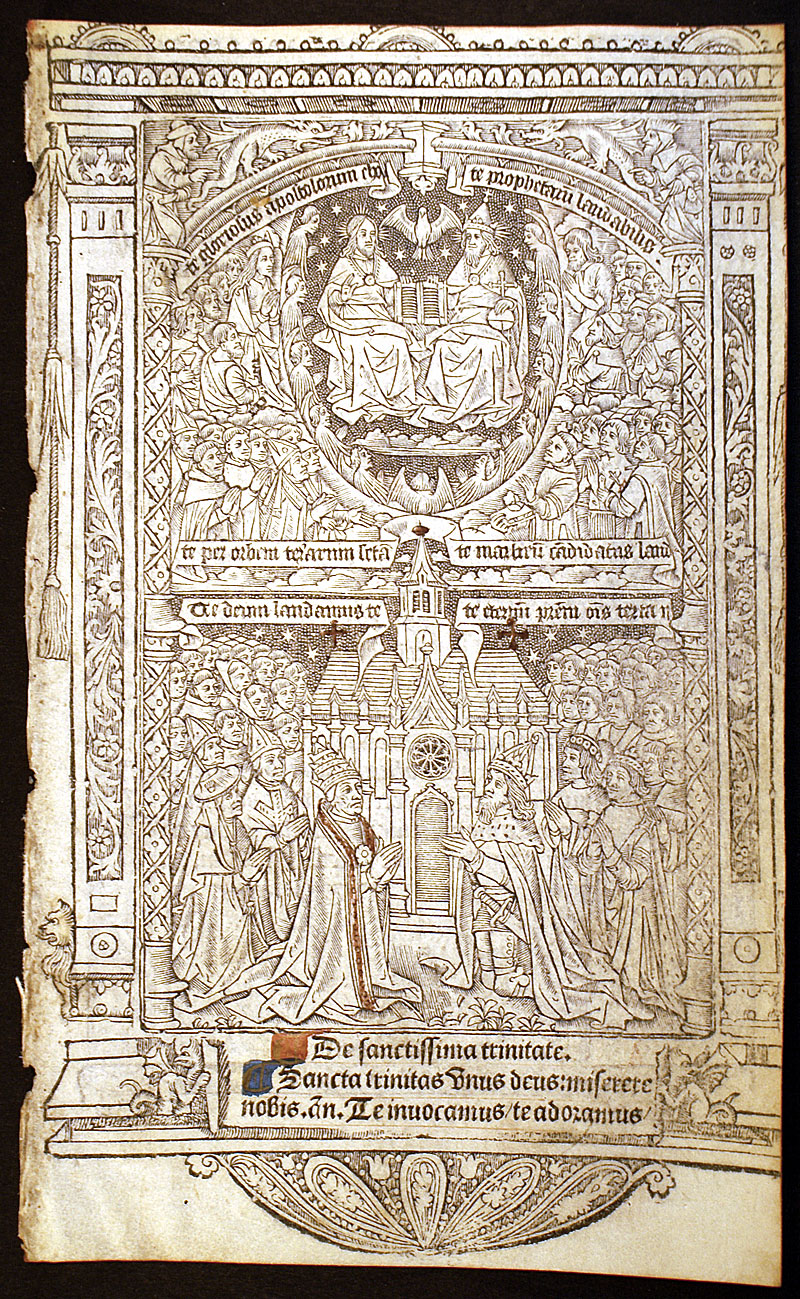 te gloriosus apostolorum chor
te prophetarū laudabilis
te per orbem terrarum sctā
te martirū cādidatus laud
Te deum laudamus te
te eternū prēm oīs terra v
De sanctissima trinitate.
Sancta trinitas Unus deus: miserere
nobis. añ. Te inuocamus/ te adoramus/